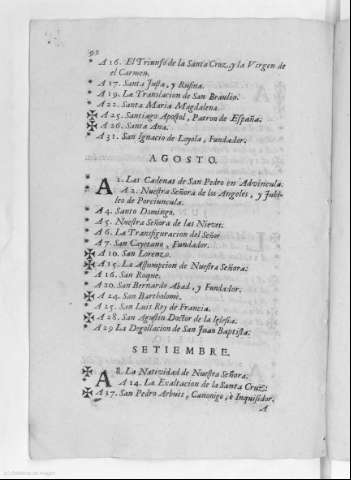 92
* A 16. El Triunfo de la Santa Cruz, y la Virgen de
el Carmen.
* A 17. Santa Justa, y Rufina.
* A 19. La Translacion de San Braulio.
* A 22. Santa Maria Magdalena.
✠ A 25. Santiago Apostol, Patron de España.
✠ A 26. Santa Ana.
* A 31. San Ignacio de Loyola, Fundador.
AGOSTO.
* A 1. Las Cadenas de San Pedro en Advincula.
* A 2. Nuestra Señora de los Angeles, y Jubi-
leo de Porciuncula.
* A 4. Santo Domingo.
* A 5. Nuestra Señora de las Nieves.
* A 6. La Transfiguracion del Señor
* A 7. San Cayetano, Fundador.
✠ A 10. San Lorenzo.
✠ A 15. La Assumpcion de Nuestra Señora:
* A 16. San Roque.
* A 20. San Bernardo Abad, y Fundador.
✠ A 24. San Bartholomè.
* A 25. San Luis Rey de Francia.
✠ A 28. San Agustin Doctor de la Iglesia.
* A 29 La Degollacion de San Juan Baptista.
SETIEMBRE.
✠ A 8. La Natividad de Nuestra Señora.
* A 14. La Exaltacion de la Santa Cruz:
✠ A 17. San Pedro Arbuès, Canonigo, è Inquisidor.
A